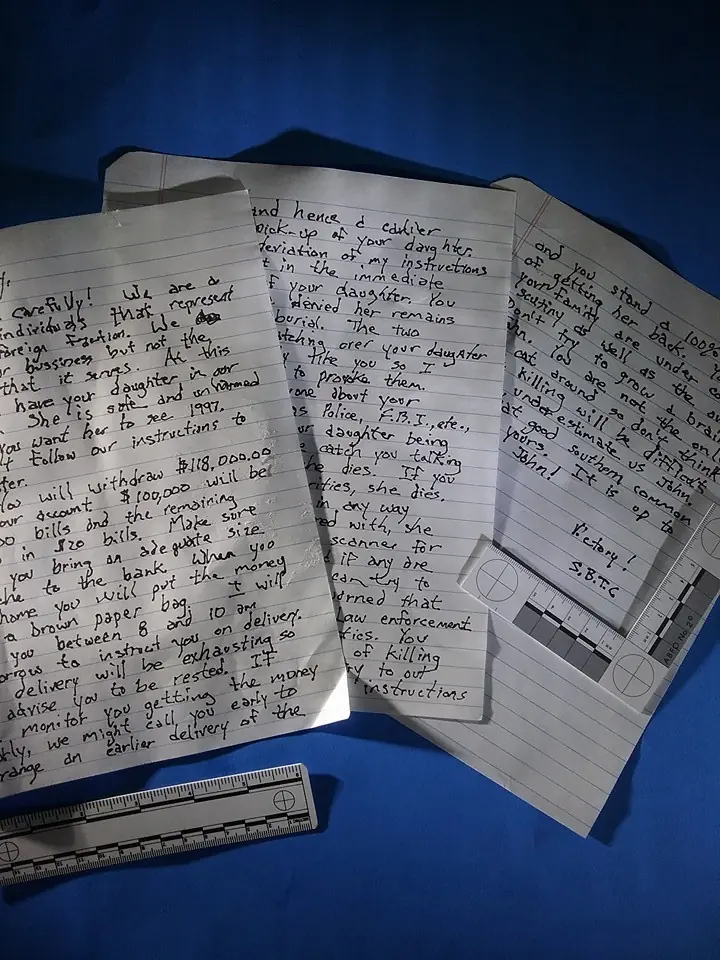 y.
carefully! We are a
individuals that represent
foreign faction. We
r bussiness but not the
that it serves. At this
have your daughter in our
She is safe and unharmed
you want her to see 1997.
t follow our instructions to
tter.
You will withdraw $118,000.00
our account. $100,000 will be
00 bills and the remaining
in $20 bills. Make sure
you bring an adequate size
che to the bank. When you
home you will put the money
a brown paper bag. I will
you between 8 and 10 am
orrow to instruct you on delivery.
delivery will be exhausting so
advise you to be rested. If
monitor you getting the money
rly, we might call you early to
range an earlier delivery of the
and hence a earlier
pick-up of your daughter.
deviation of my instructions
t in the immediate
f your daughter. You
denied her remains
burial. The two
tching over your daughter
y like you so I
to provoke them.
one about your
as Police, F.B.I., etc.,
ur daughter being
catch you talking
he dies. If you
rities, she dies.
in any way
red with, she
scanner for
d if any are
can try to
arned that
Law enforcement
ties. You
of killing
ry to out
instructions
and you stand a 100%
of getting her back. Y
your family are under c
scutiny as well as the au
Don't try to grow a brain
hn. You are not the only
cat around so don't think
killing will be difficult
underestimate us John
at good southern common
yours. It is up to
John!
Victory!
S.B.T.C
ABFO No.